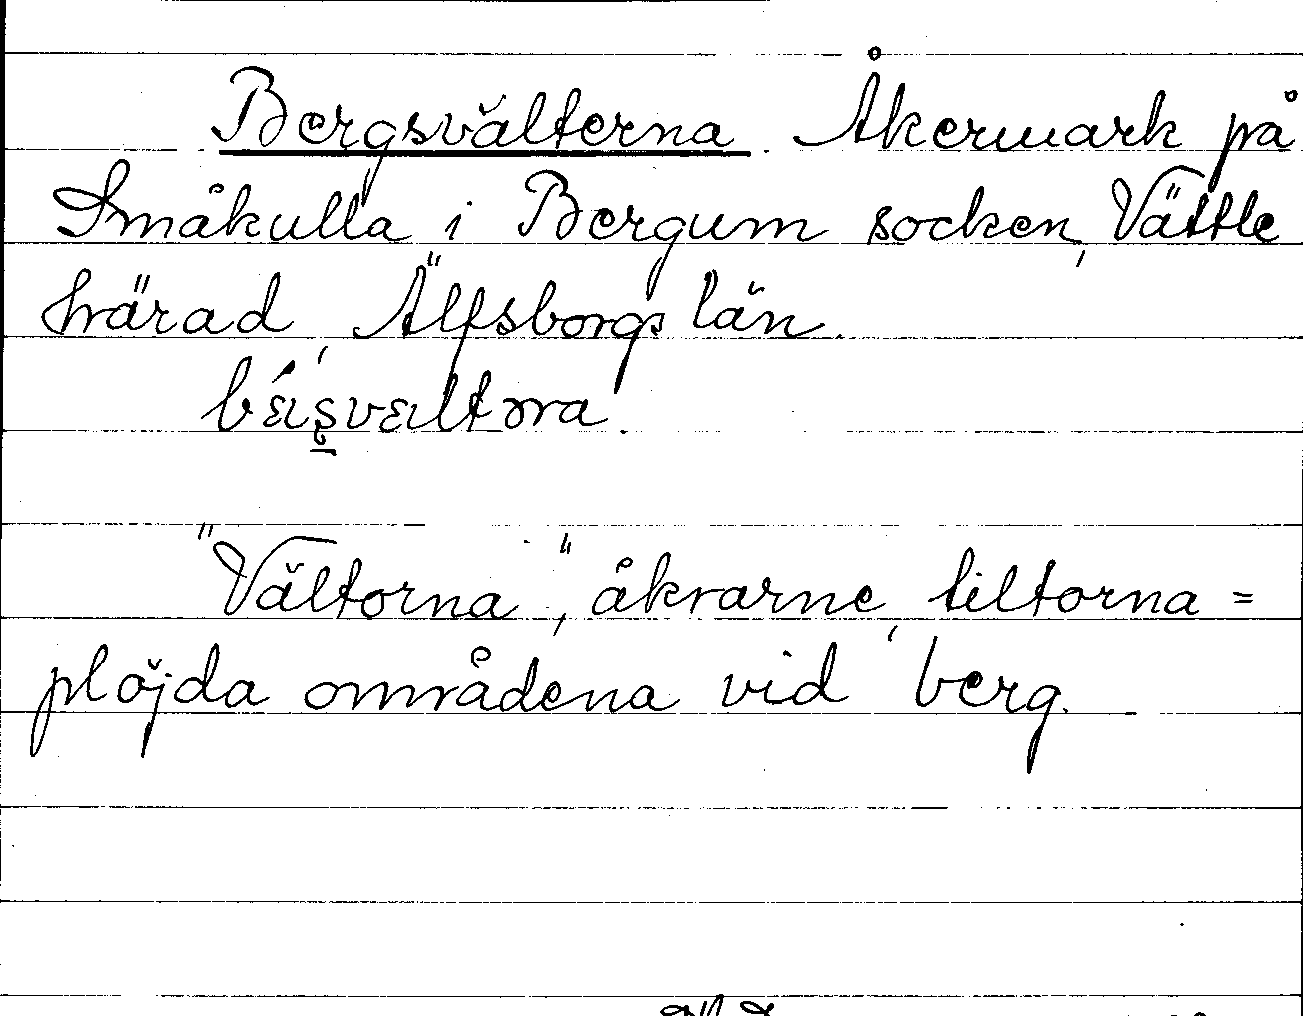 Bergsvälterna. Åkermark på
Småkulla i Bergum socken, Vättle
härad, Älfsborgs län.
"Vältorna", åkrarne, tiltorna =
plöjda områdena vid berg.